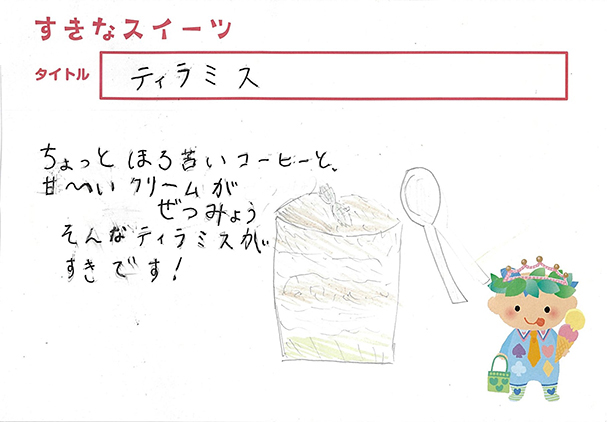 すきなスイーツ
タイトル
ティラミス
ちょっと ほろ苦い コーヒーと、
甘〜い クリームが
ぜつみょう
そんなティラミスが
すきです!